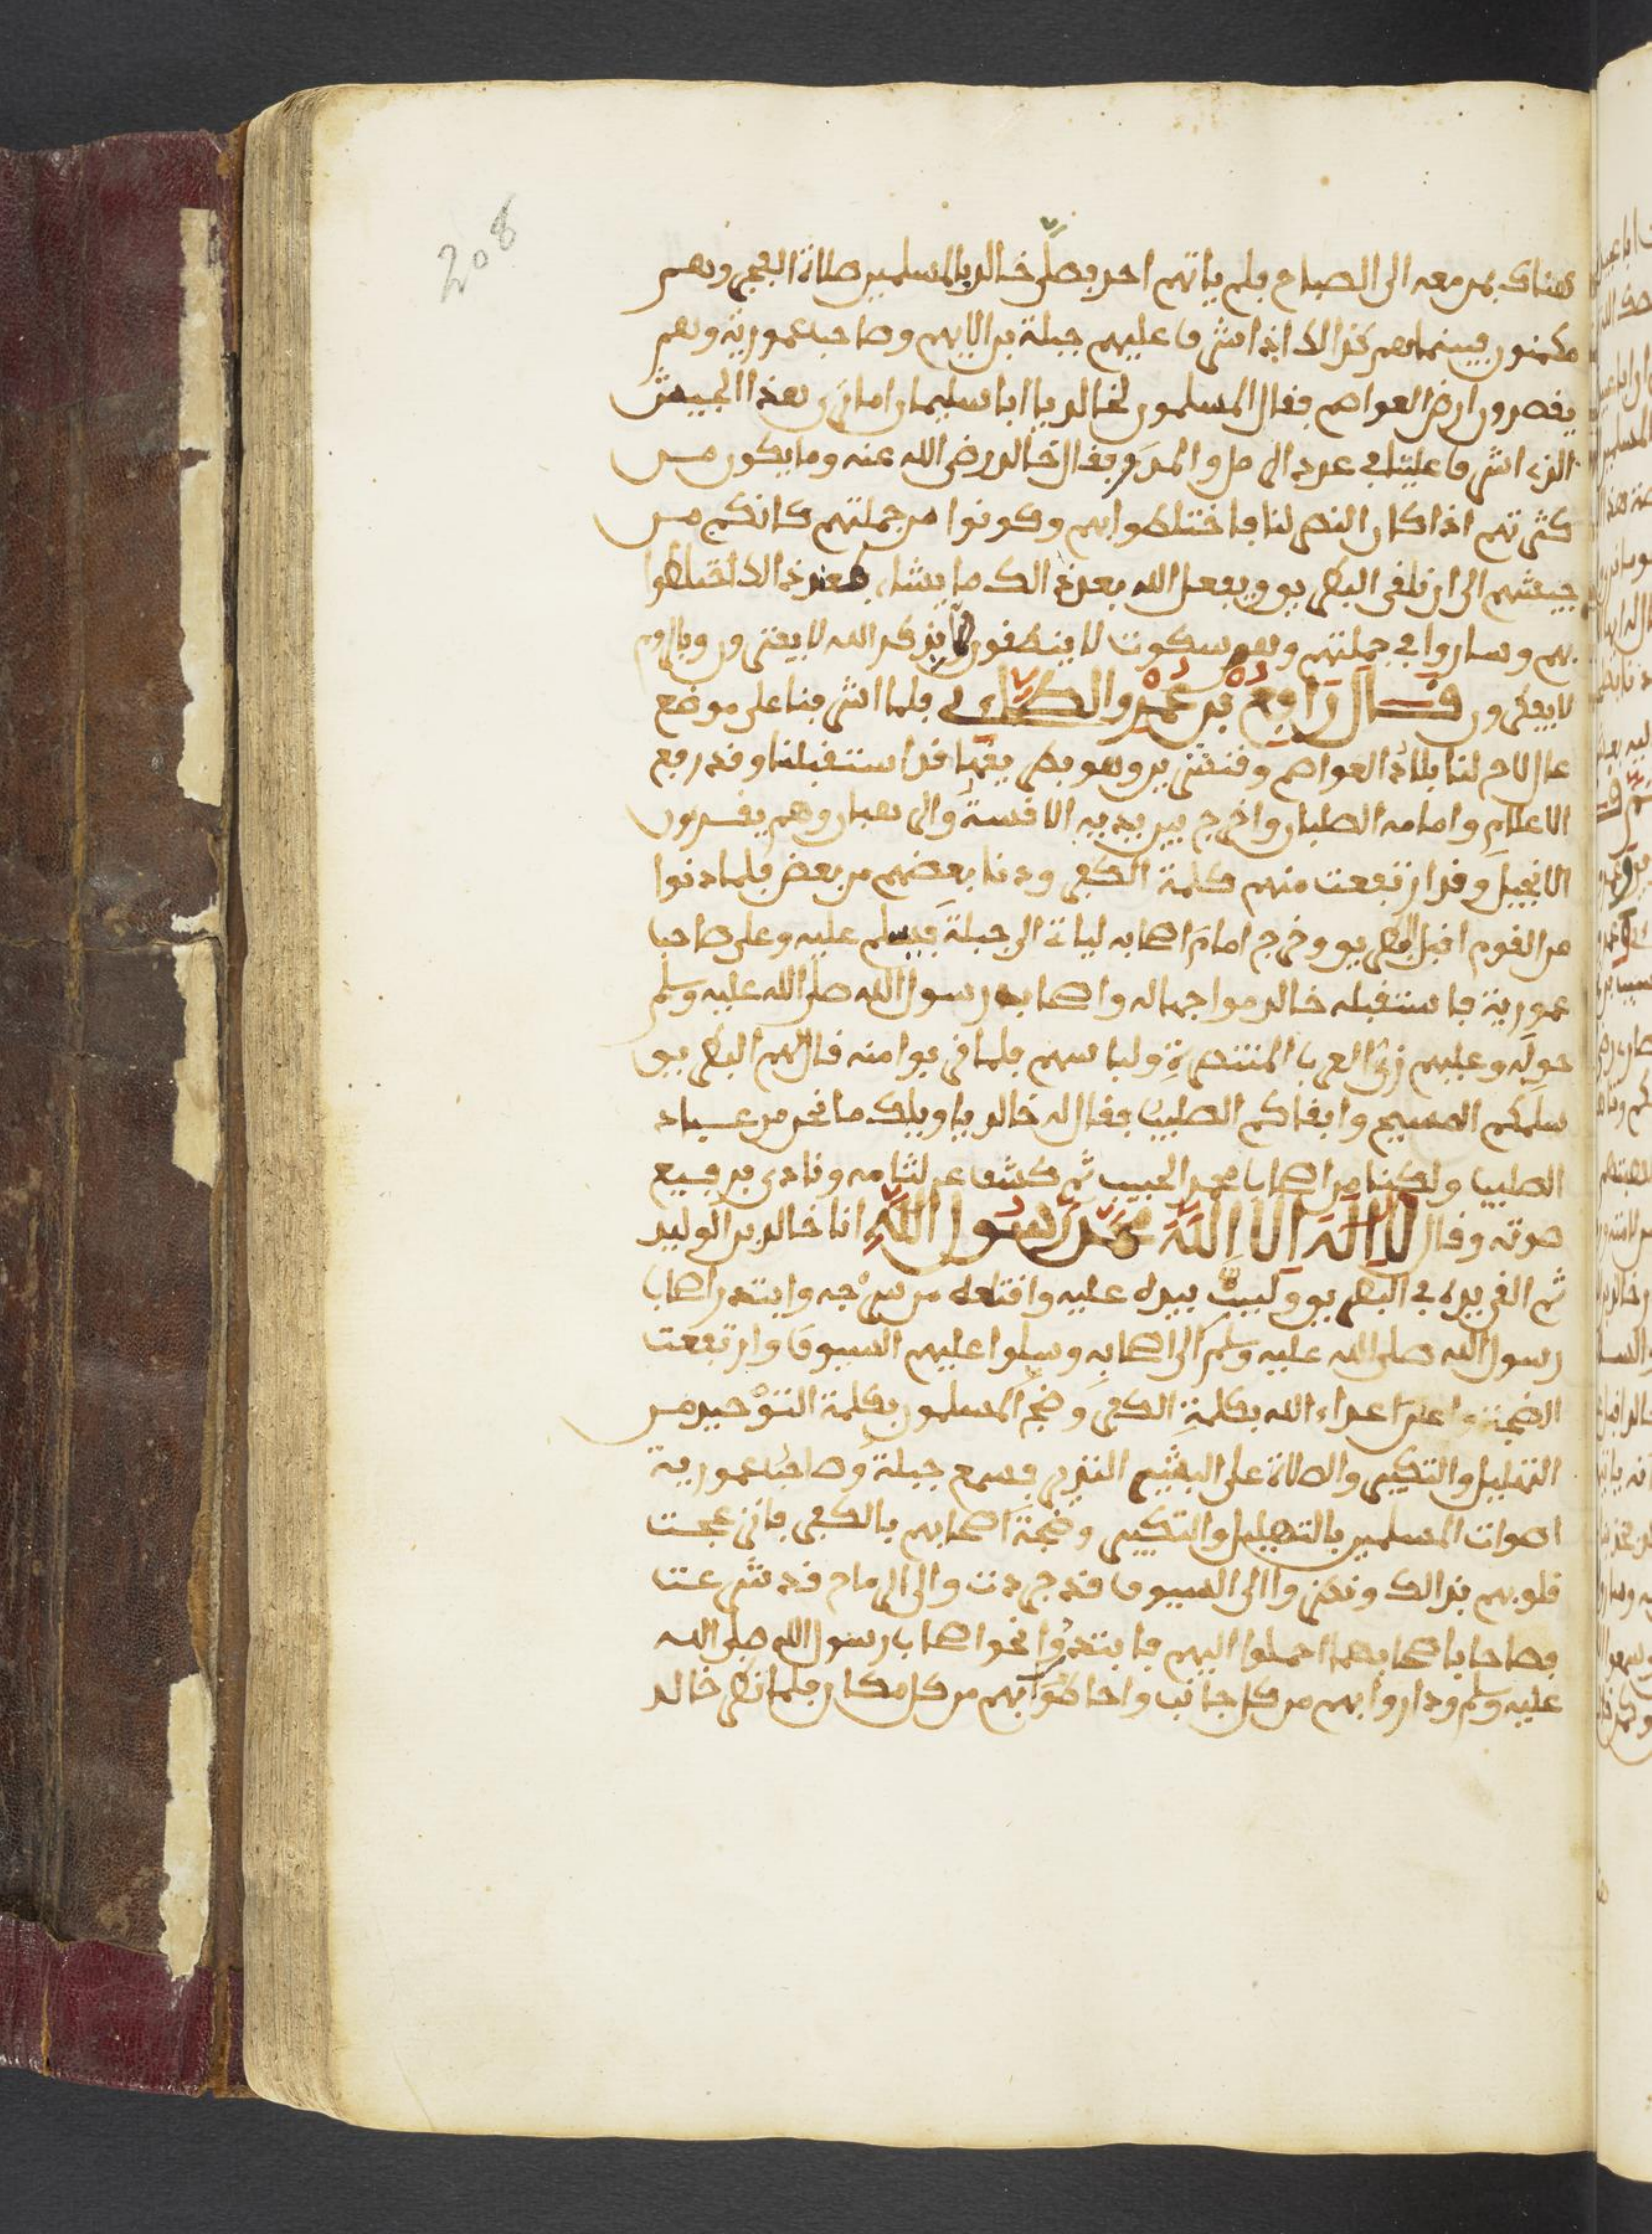 208
هناك بمن معه الى الصباح فلم ياتهم احد فصلّى خالد بالمسلمين صلاة الفجر وهم
مكمنون فبينما هم كذالك اذ اشرف عليهم جبلة بن الايهم وصاحب عمورية وهم
يقصدون ارض العواصم فقال المسلمون لخالد يا ابا سليمان اما ترى هذا الجيش
الذي اشرف علينا في عدد الرمل والمدر فقال خالد رضي الله عنه وما يكون من
كثرتهم اذا كان النصر لنا فاختلطوا بهم وكونوا من جملتهم كانكم من
جيشهم الى ان نلقى البطريق ويفعل الله بعد ذالك ما يشاء فعند ذالك اختلطوا
بهم وساروا في جملتهم وهم سكوت لا ينطقون الا بذكر الله لا يفترون وبالروم
لا يفكرون قال رافع بن عمرو الطاءي فلما اشرفنا على موضع
عال لاح لنا بلاد العواصم وقنسرين وهو بطريقها قد استقبلنا وقد رفع
الاعلام وامامه الصلبان واخرج بين يديه الاقسة والرهبان وهم يقرءون
الانجيل وقد ارتفعت منهم كلمة الكفر ودنا بعضهم من بعض فلما دنوا
من القوم اقبل البطريق وخرج امام اصحابه لياتي الى جبلة فيسلم عليه وعلى صاحب
عمورية فاستقبله خالد مواجها له واصحاب رسول الله صلى الله عليه وسلم
حوله وعليهم زي العرب المنتصرة ولباسهم فلما قربوا منه قال لهم البطريق
سلمكم المسيح وابقاكم الصليب فقال له خالد يا ويلك ما نحن من عباد
الصليب ولكننا من اصحاب محمد الحبيب ثم كشف عن لثامه ونادى برفيع
صوته وقال لا اله الا الله محمد رسول الله انا خالد بن الوليد
ثم القى يده في البطريق وكبت بيده عليه واقتلعه من سرجه وابتدر اصحاب
رسول الله صلى الله عليه وسلم الى اصحابه وسلوا عليهم السيوف وارتفعت
الضجة اعداء الله بكلمة الكفر وضج المسلمون بكلمة التوحيد من
التهليل والتكبير والصلاة على البشير النذير فسمع جبلة وصاحب عمورية
اصوات المسلمين بالتهليل والتكبير وضجة اصحابهم بالكفر فانزعجت
قلوبهم بذالك ونظروا الى السيوف قد جردت والى الرماح قد شرعت
فصاحا باصحابهما احملوا اليهم فابتدروا نحو اصحاب رسول الله صلى الله
عليه وسلم وداروا بهم من كل جانب واحاطوا بهم من كل مكان فلما نظر خالد